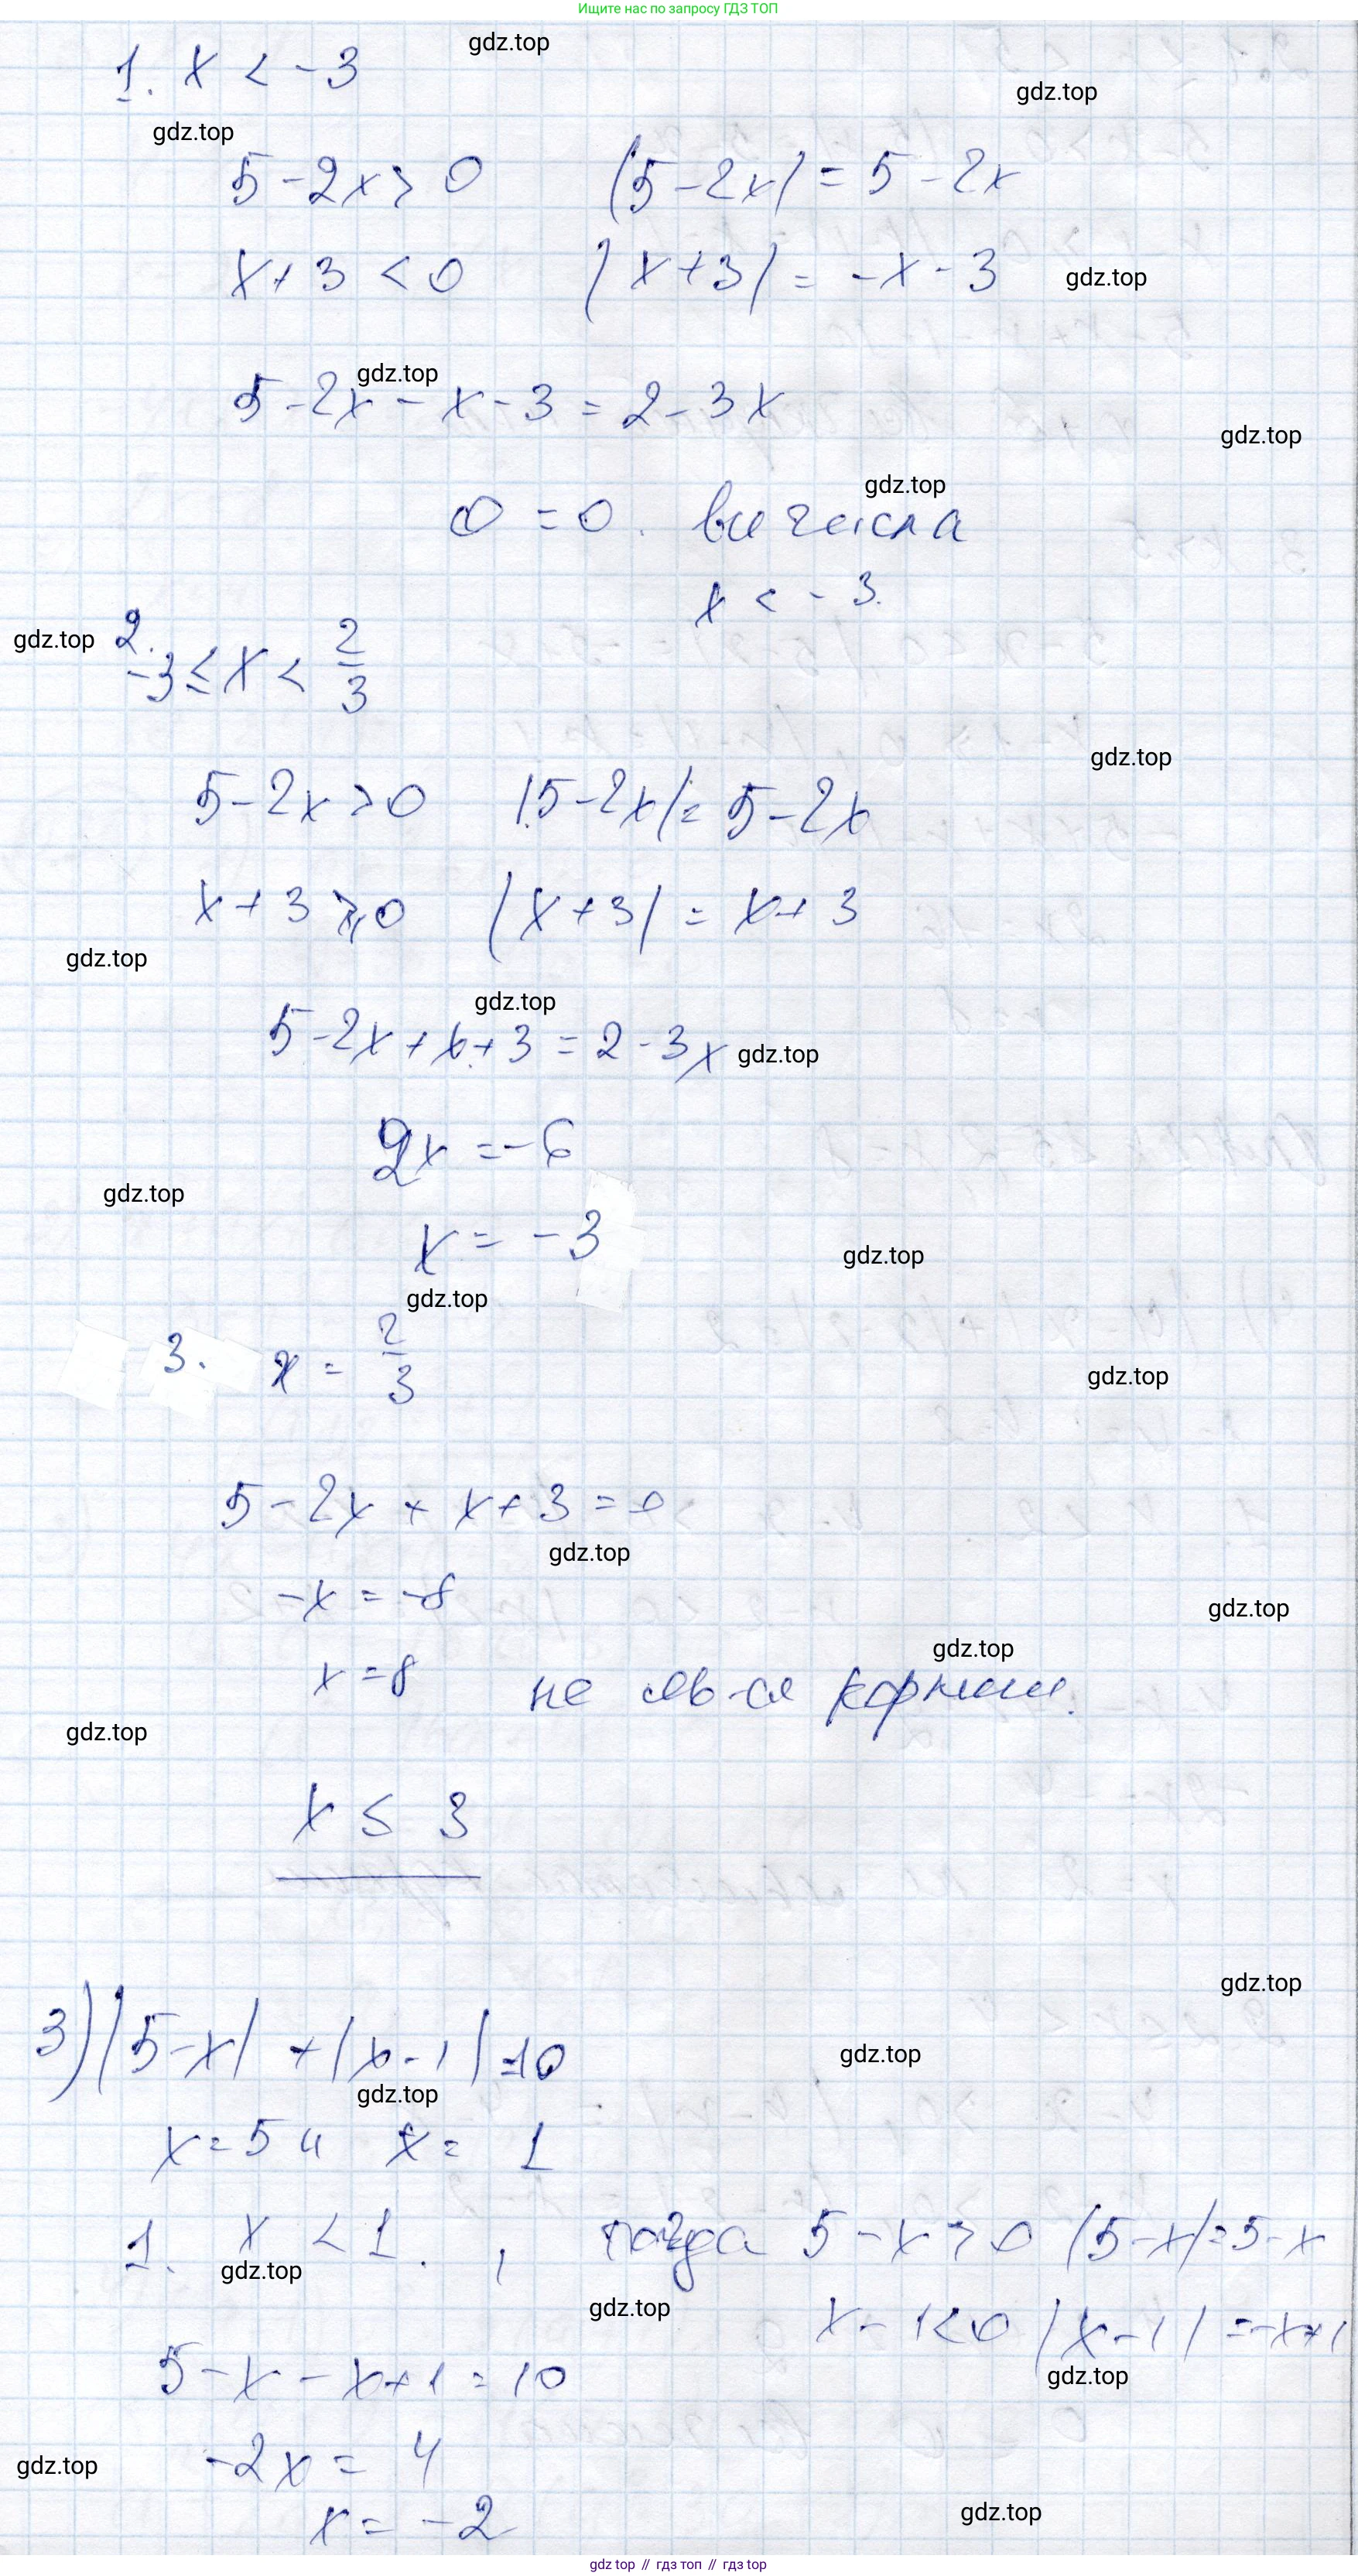 Ищите нас по запросу ГДЗ ТОП
gdz.top
1. x < -3
gdz.top
gdz.top
5 - 2x > 0 |5 - 2x| = 5 - 2x
x + 3 < 0 |x + 3| = -x - 3
gdz.top
gdz.top
5 - 2x - x - 3 = 2 - 3x
gdz.top
gdz.top
0 = 0. все числа
x < -3.
gdz.top
2. -3 ≤ x < 2/3
gdz.top
5 - 2x > 0 |5 - 2x| = 5 - 2x
x + 3 ⩾ 0 |x + 3| = x + 3
gdz.top
gdz.top
5 - 2x + x + 3 = 2 - 3x
gdz.top
2x = -6
gdz.top
x = -3
gdz.top
gdz.top
3. x = 2/3
gdz.top
5 - 2x + x + 3 = 0
gdz.top
-x = -8
gdz.top
gdz.top
x = 8 не яв-ся корнем.
gdz.top
x ≤ 3
gdz.top
3) |5 - x| + |x - 1| = 10
gdz.top
gdz.top
x = 5 и x = 1
1. x < 1. , тогда 5 - x > 0 |5 - x| = 5 - x
gdz.top
gdz.top
x - 1 < 0 |x - 1| = -x + 1
gdz.top
5 - x - x + 1 = 10
-2x = 4
gdz.top
x = -2
gdz.top
gdz top // гдз топ // gdz top